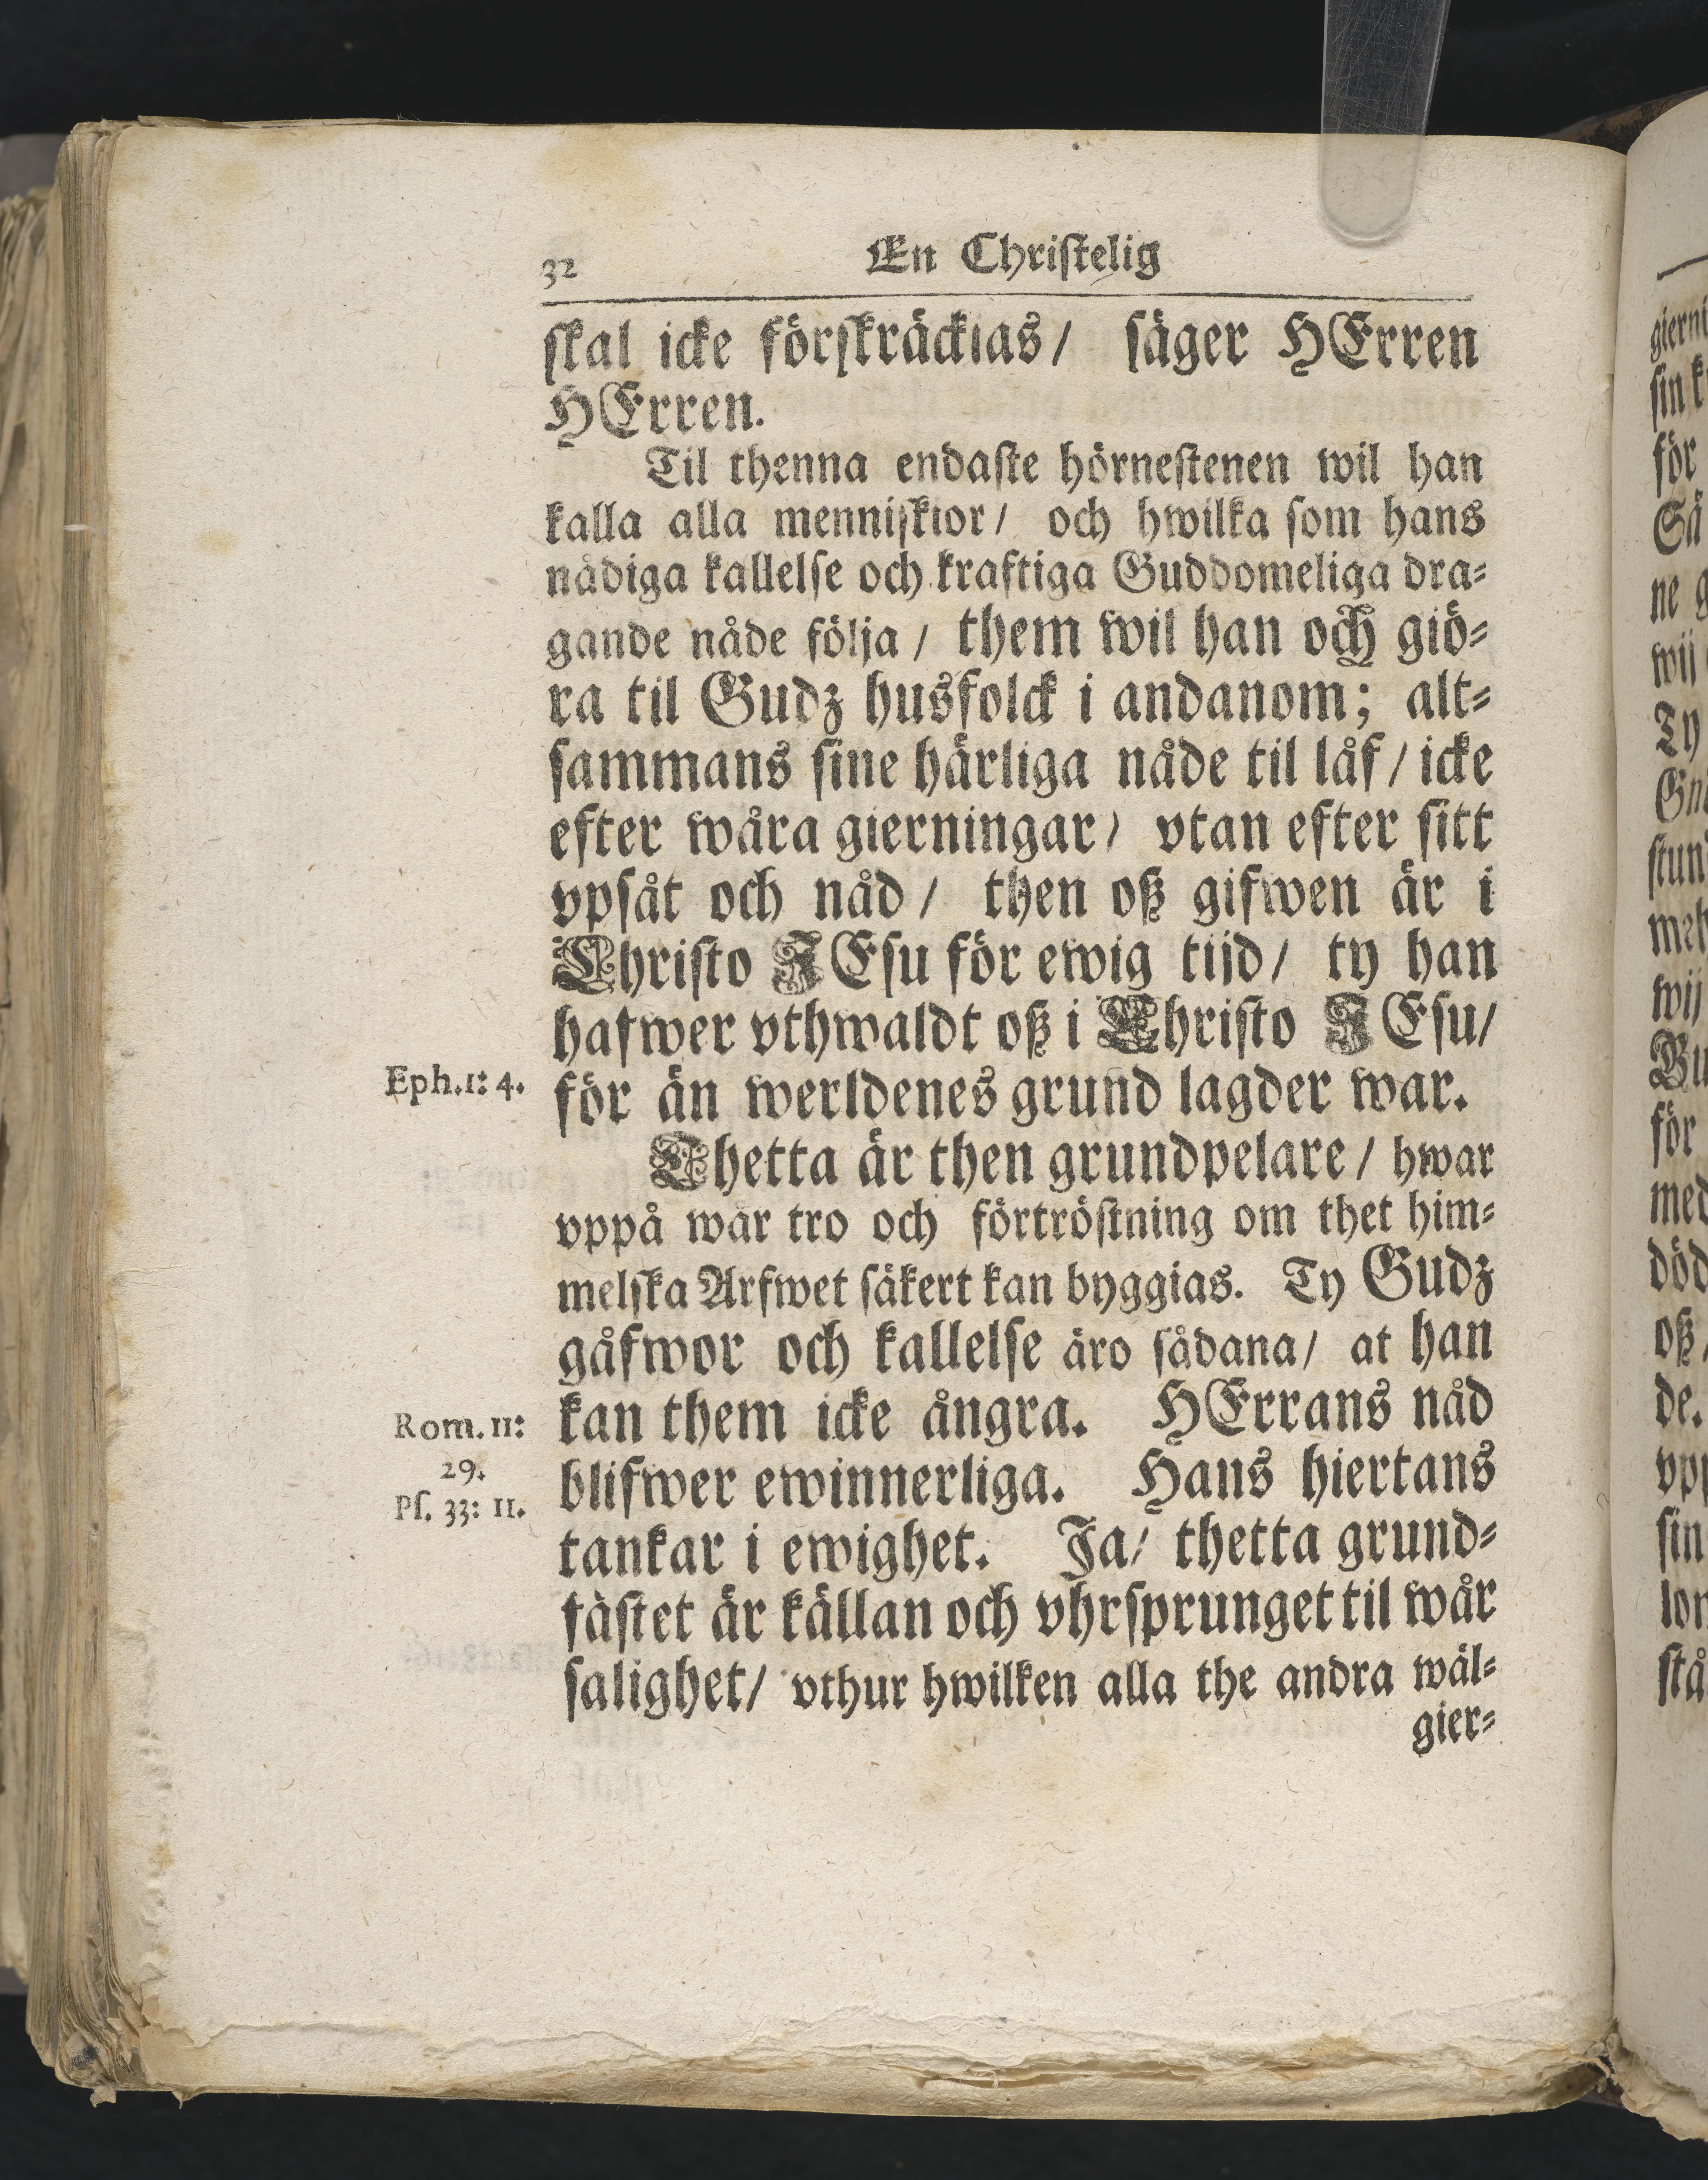 32 En Christelig
skal icke förskräckias/ säger HErren
HErren.
Til thenna endaste hörnestenen wil han
kalla alla menniskior/ och hwilka som hans
nådiga kallelse och kraftiga Guddomeliga dra⸗
gande nåde följa / them wil han och giö⸗
ra til Gudz husfolck i andanom; alt⸗
sammans sine härliga nåde til låf / icke
efter wåra gierningar/ vtan efter sitt
vpsåt och nåd / then oß gifwen är i
Christo JEsu för ewig tijd/ ty han
hafwer vthwaldt oß i Christo JEsu/
Eph.1: 4. för än werldenes grund lagder war.
Thetta är then grundpelare / hwar
vppå wår tro och förtröstning om thet him⸗
melska Arfwet säkert kan byggias. Ty Gudz
gåfwor och kallelse äro sådana/ at han
Rom. 11: kan them icke ångra. HErrans nåd
29. blifwer ewinnerliga. Hans hiertans
Ps. 33: 11. tankar i ewighet. Ja/ thetta grund⸗
fästet är källan och vhrsprunget til wår
salighet/ vthur hwilken alla the andra wäl⸗
gier⸗